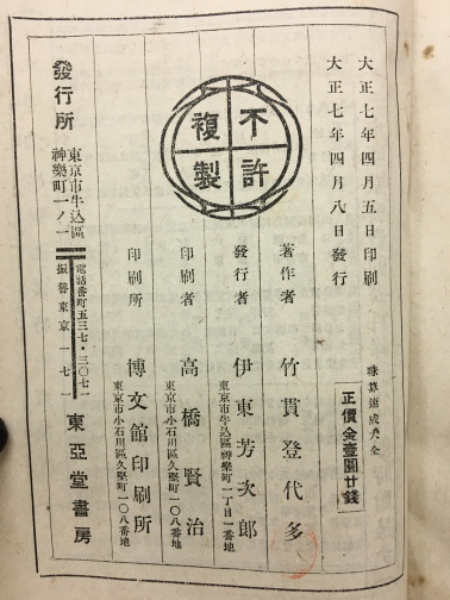 大正七年四月五日印刷
大正七年四月八日發行
珠算速成大全
正價金壹圓廿錢
不許
複製
著作者 竹貫登代多
發行者 伊東芳次郎
東京市牛込區神樂町一丁目一番地
印刷者 高橋賢治
東京市小石川區久堅町一〇八番地
印刷所 博文館印刷所
東京市小石川區久堅町一〇八番地
發行所
東京市牛込區
神樂町一ノ一
電話番町五三七・三〇七一
振替東京一七一
東亞堂書房